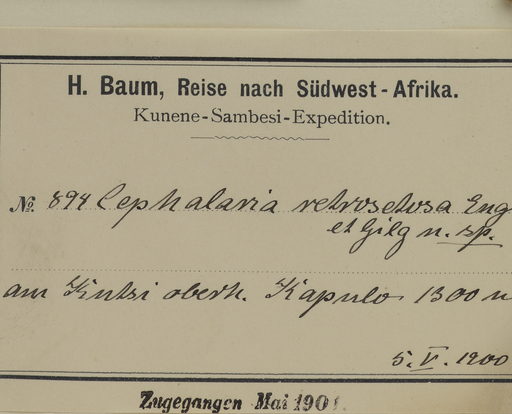 H. Baum, Reise nach Südwest-Afrika.
Kunene-Sambesi-Expedition.
№. 894 Cephalaria retrosetosa Eng
et Gilg n. sp.
am Kutsi oberh. Kapulo 1300 m
5. V. 1900
Zugegangen Mai 1901.